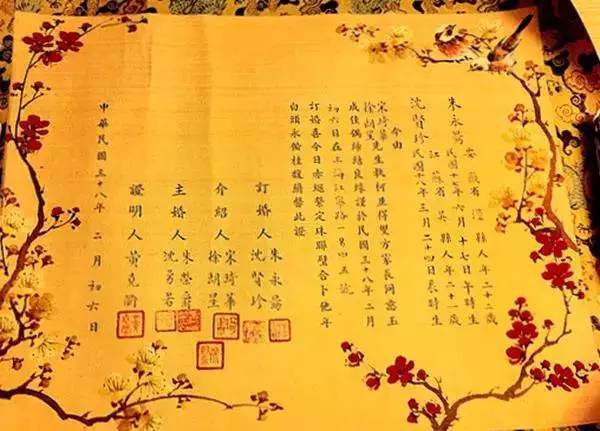 朱永昜 安徽省涇縣人年二十二歲
民國十七年六月十七日午時生
沈賢珍 江蘇省吳縣人年二十一歲
民國十八年三月二十四日辰時生
今由
宋琦華
徐朗星先生執柯並得雙方家長同意玉
成佳偶締結良緣謹於民國三十八年二月
初六日在上海江寧路一另四五號
訂婚喜今日赤繩繫定珠聯璧合卜他年
白頭永偕桂馥蘭馨此證
訂婚人 朱永昜
沈賢珍
介紹人 宋琦華
徐朗星
主婚人 朱榮
沈勇
證明人 黃克
中華民國三十八年二月初六日